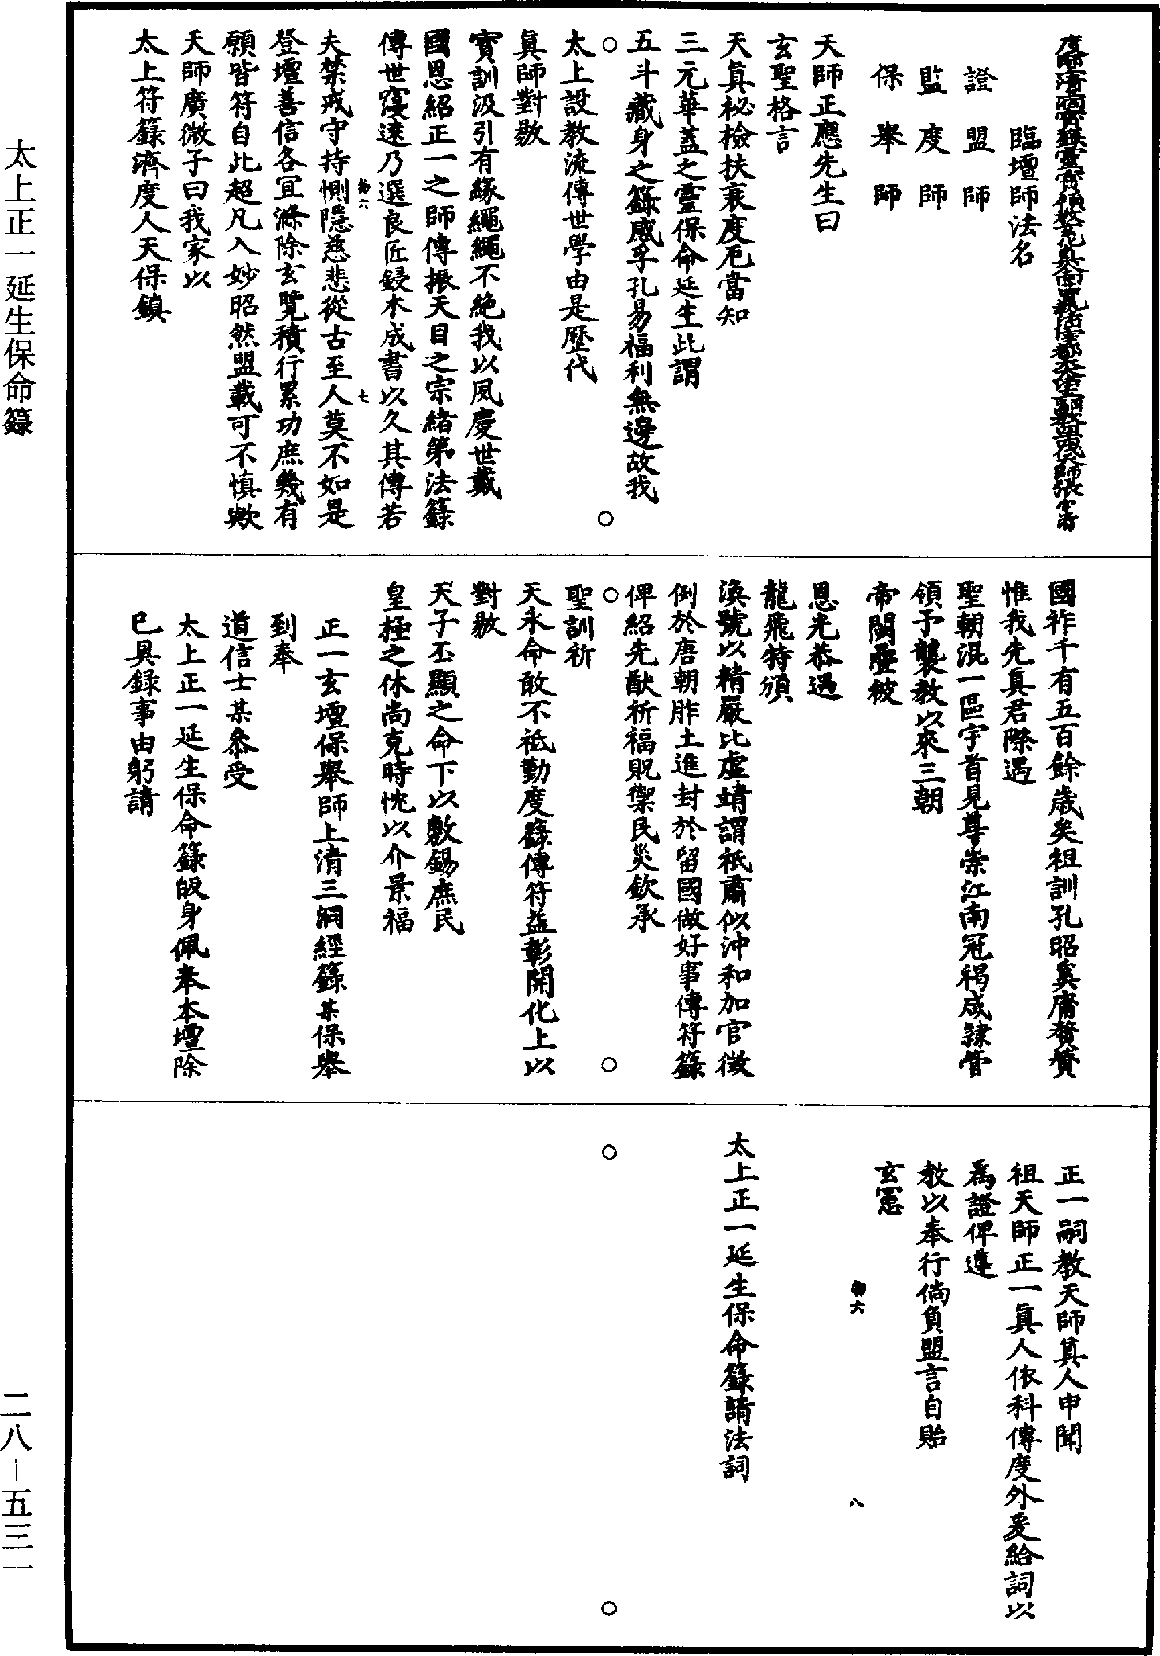 臨壇師法名
證盟師
監度師
保舉師
天師正應先生曰
玄聖格言
天真祕檢扶衰度厄當知
三元華蓋之靈保命延生此謂
五斗藏身之籙感孚孔易福利無邊故我
太上設教流傳世學由是歷代
真師對敭
寳訓汲引有緣繩繩不絶我以夙慶世戴
國恩紹正一之師傳振天目之宗緒第法籙
傳世寖遠乃選良匠鋟木成書以久其傳若
夫禁戒守持惻隱慈悲從古至人莫不如是
登壇善信各宜滌除玄覽積行累功庶幾有
願皆符自此超凡入妙昭然盟載可不慎歟
天師廣微子曰我家以
太上符籙濟度人天保鎮
七
國祚千有五百餘歲矣祖訓孔昭奚庸贅贊
惟我先真君際遇
聖朝混一區宇首見尊崇江南冠褐咸隸管
領予襲教以來三朝
帝闕疊被
恩光恭遇
龍飛特頒
渙號以精嚴比虛靖謂祗肅似沖和加官徵
例於唐朝胙土進封於留國做好事傳符籙
俾紹先猷祈福貺禦民災欽承
聖訓祈
天永命敢不祗勤度籙傳符益彰開化上以
對敭
天子丕顯之命下以敷錫庶民
皇極之休尚克時忱以介景福
正一玄壇保舉師上清三洞經籙某保舉
到奉
道信士某叅受
太上正一延生保命籙皈身佩奉本壇除
已具錄事由躬請
正一嗣教天師真人申聞
祖天師正一真人依科傳度外爰給詞以
為證俾遵
教以奉行倘負盟言自貽
玄憲
八
太上正一延生保命籙請法詞
太上正一延生保命籙
二八－五三一